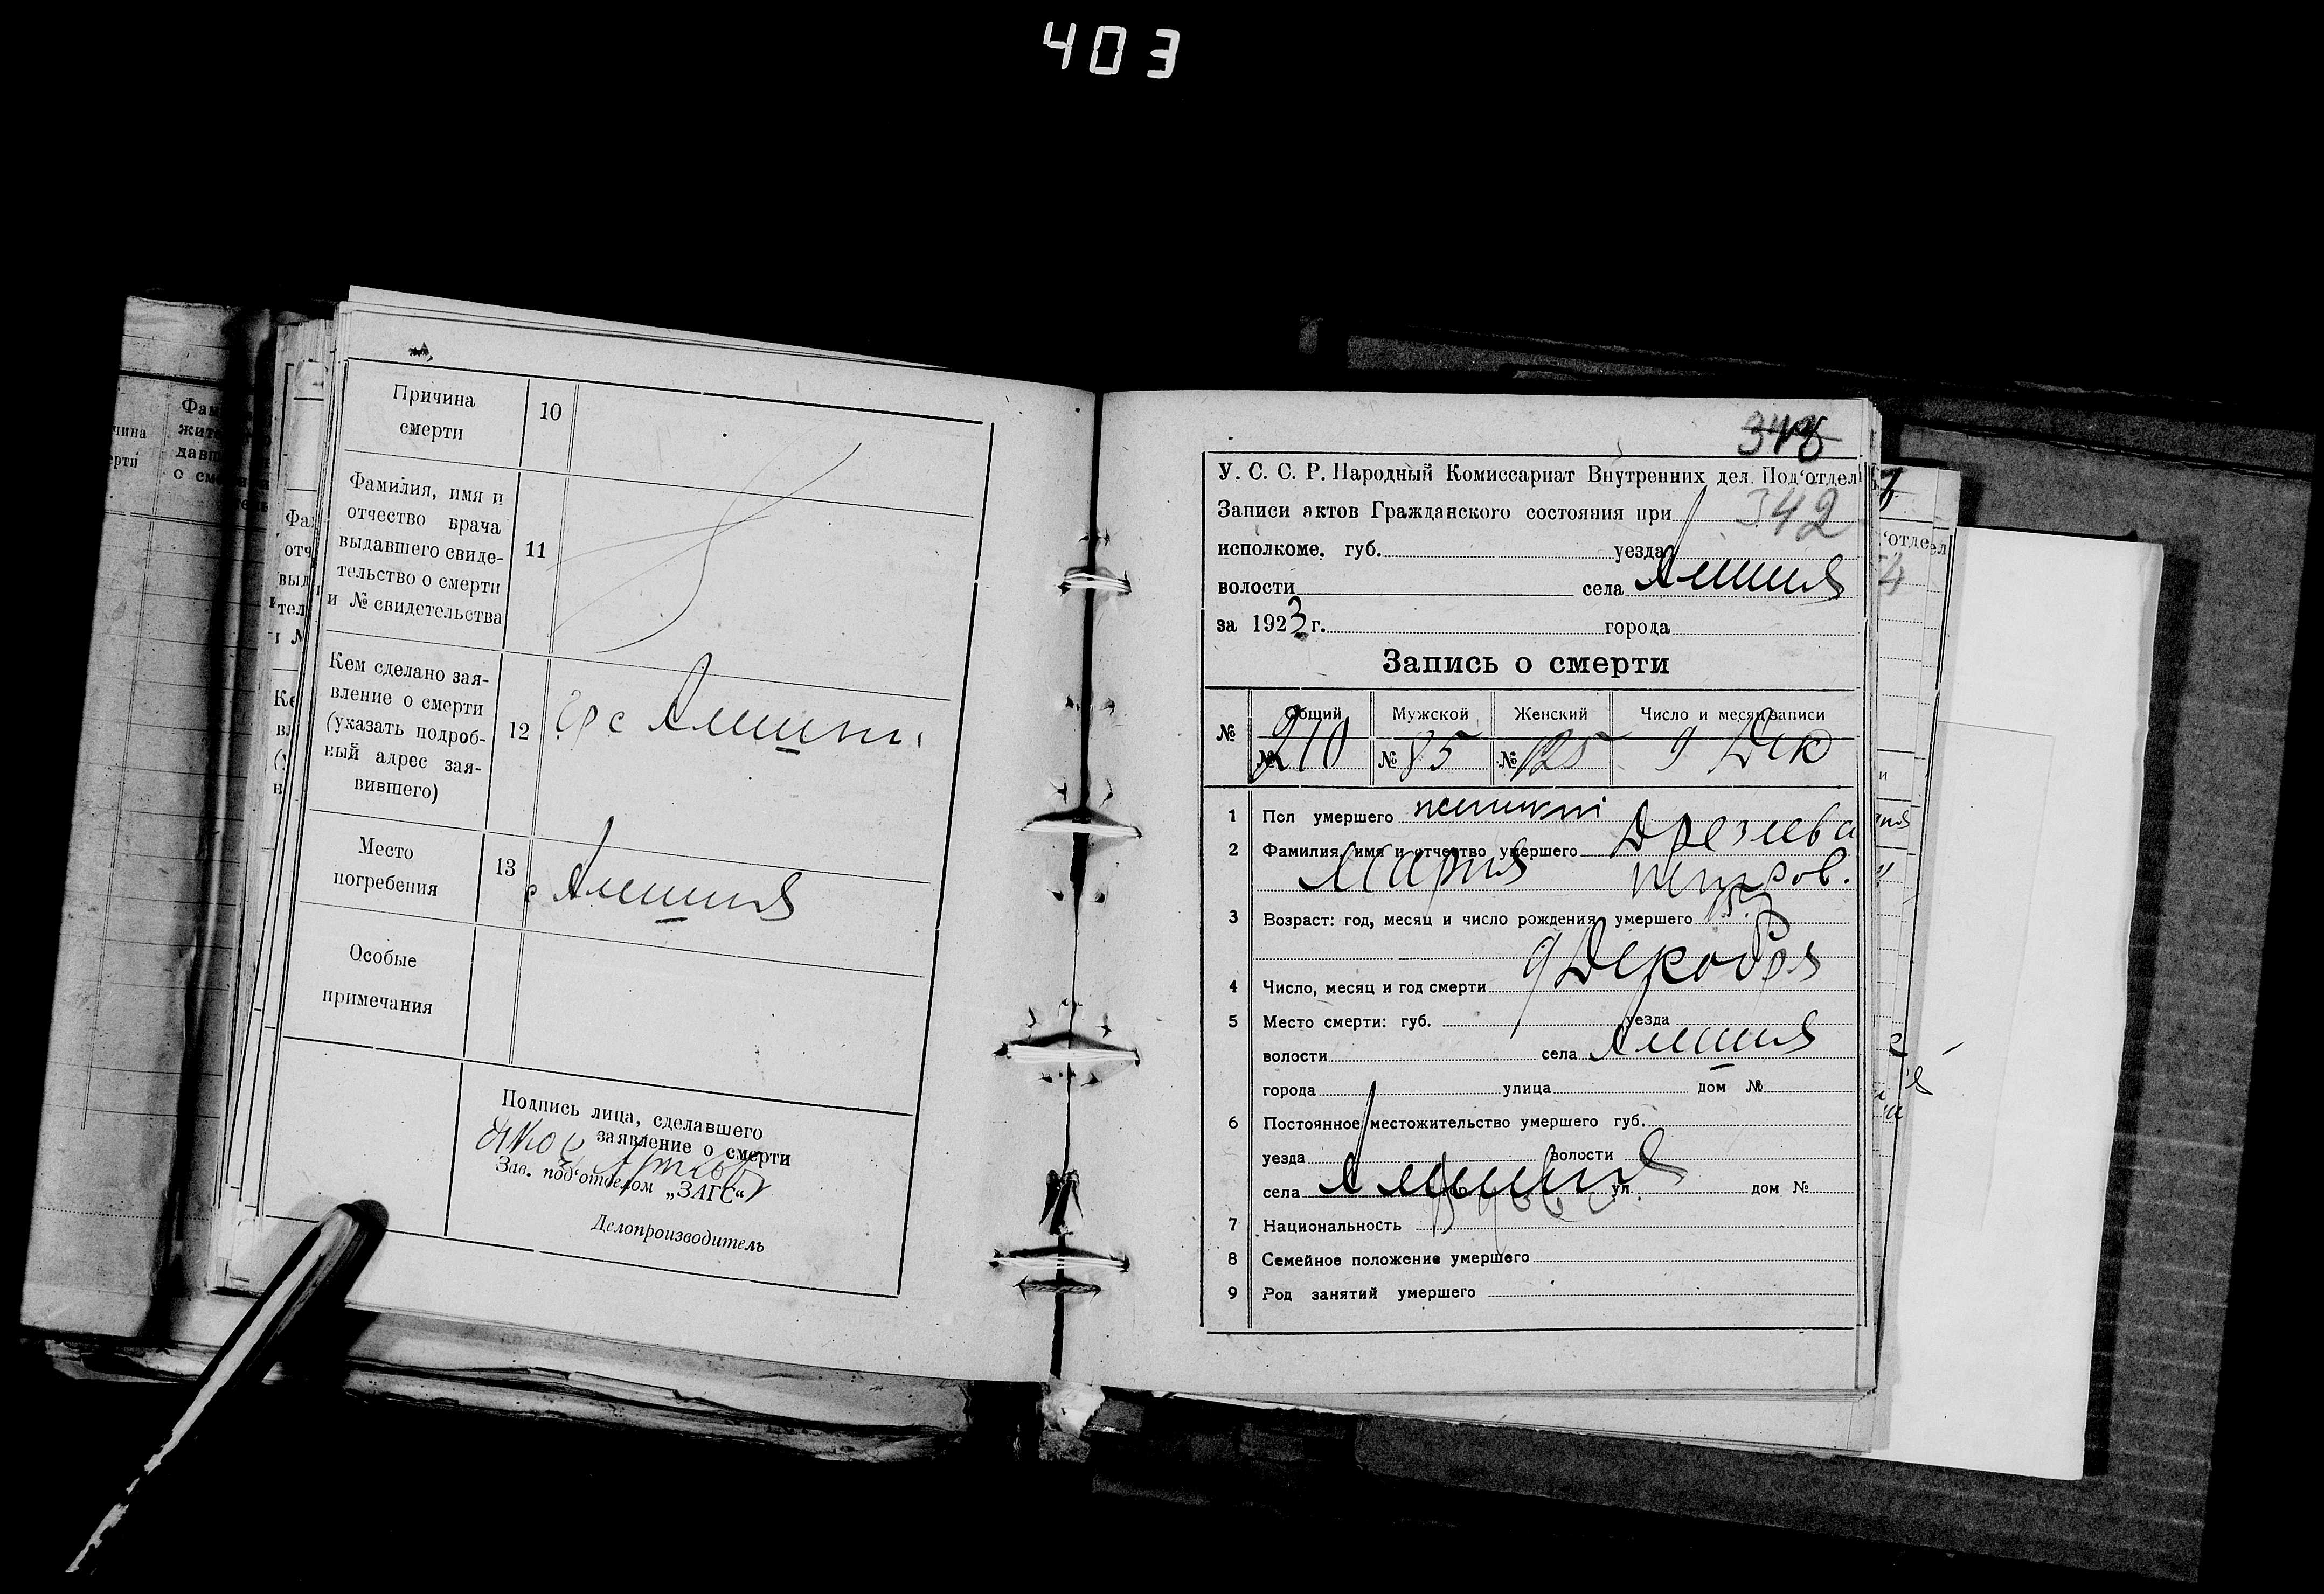 403
Причина
смерти
10
Фамилия, имя и
отчество врача
выдавшего свиде-
тельство о смерти
и № свидетельства
11
Кем сделано зая-
вление о смерти
(указать подроб-
ный адрес зая-
вившего)
12
гр с
Место
погребения
13
с
Особые
примечания
Подпись лица, сделавшего
заявление о смерти
Зав. под'отделом „ЗАГС“
Делопроизводитель
348
У. С. С. Р. Народный Комиссариат Внутренних дел. Под'отдел
Записи актов Гражданского состояния при 342
исполкоме. губ. уезда
волости села
за 1923 г. города
Запись о смерти
№ Общий Мужской Женский Число и месяц записи
№ 210 № 85 № 125 9 Дек
1 Пол умершего женский
2 Фамилия, имя и отчество умершего
Мария Петров.
3 Возраст: год, месяц и число рождения умершего
9 Декабря
4 Число, месяц и год смерти
5 Место смерти: губ. уезда
волости села
города улица дом №
6 Постоянное местожительство умершего губ.
уезда волости
села ул. дом №
7 Национальность
8 Семейное положение умершего
9 Род занятий умершего